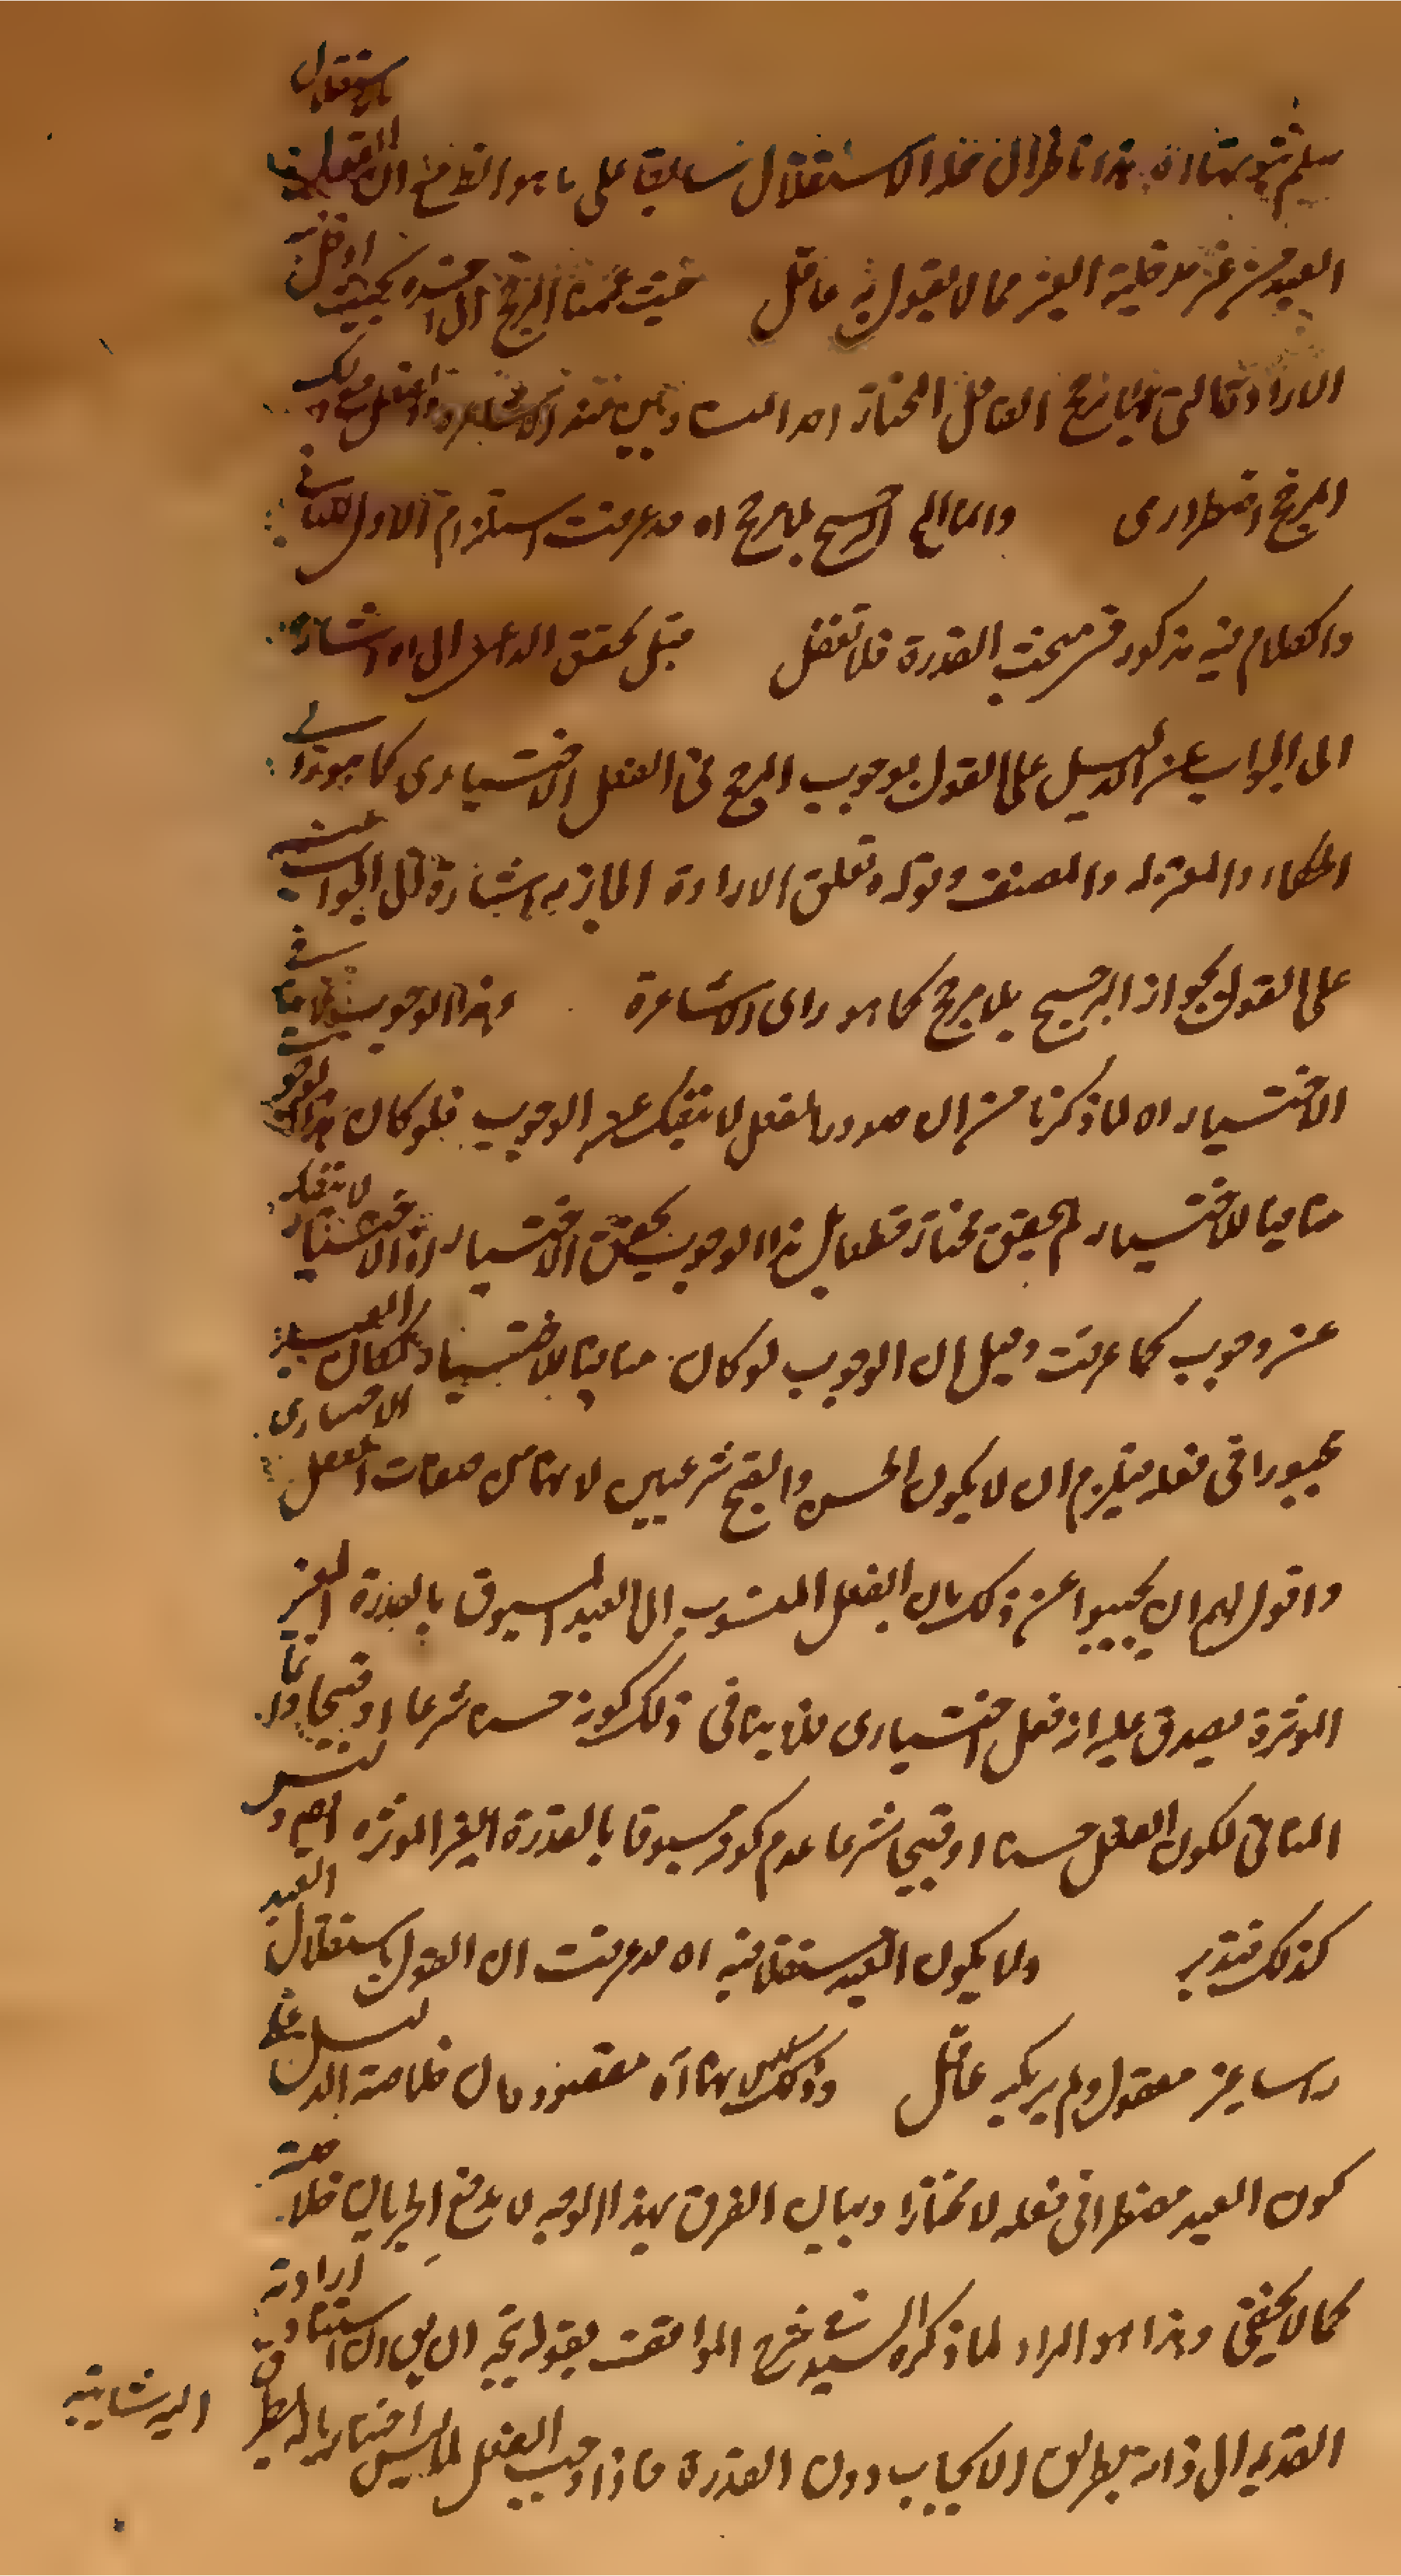 هذا ناظر الى نحو الاستقلال سابقا على ما هو الواضح ان القول باستقلال
العبد من غير مدخلية الغير مما لا يقول به عاقل حيث عممنا المرجح
الارادة التي بها يرجح الفاعل المختار احد المتساويين عند الاشاعرة
المرجح اضطرارى والا الترجيح بلا مرجح اه قد عرفت استلزام الاول للثانى
والكلام فيه مذكور فى مبحث القدرة فلا تغفل قبل تحقق الداعى الى اه اشارة
الى الجواب عن الدليل على القول بوجوب المرجح فى الفعل الاختيارى كما هو راى
الحكماء والمعتزلة والمصنف وقوله وتعلق الارادة الجازمة اشارة الى الجواب عنه
على القول بجواز الترجيح بلا مرجح كما هو راى الاشاعرة وهذا الوجوب لا ينافى
الاختيار اه لما ذكرنا من ان صدور الفعل لا ينفك عن الوجوب فلو كان هذا الوجوب
منافيا للاختيار لم يتحقق مختار قطعا بل هذا الوجوب يحقق الاختيار اذ الاختيار لا ينفك
عن وجوب كما عرفت وقيل ان الوجوب لو كان منافيا للاختيار لكان العبد
مجبورا فى فعله فيلزم ان لا يكون الحسن والقبح شرعيين لانهما من صفات الفعل الاختيارى
واقول لهم ان يجيبوا عن ذلك بان الفعل المنسوب الى العبد المسبوق بالقدرة الغير
المؤثرة يصدق عليه انه فعل اختيارى فلا ينافى ذلك كونه حسنا شرعا او قبيحا وانما
المنافى لكون الفعل حسنا او قبيحا شرعا عدم كونه مسبوقا بالقدرة الغير المؤثرة ايضا وليس
كذلك فتدبر ولا يكون العبد مستقلا فيه اه قد عرفت ان القول باستقلال العبد
راسا غير معقول ولم يرتكبه عاقل وذلك ليس بهنا اه مقصوده ان خلاصة الدليل على
كون العبد مضطرا فى فعله لا مختارا وبيان الفرق بهذا الوجه لا يدفع الجريان خلاصته
كما لا يخفى وهذا هو المراد لما ذكره السيد فى شرح المواقف بقوله يتجه ان يق استناد ارادته
القديمة الى ذاته بطريق الايجاب دون القدرة فاذا وجب الفعل لما ليس اختياريا له تطرق
اليه شائبة